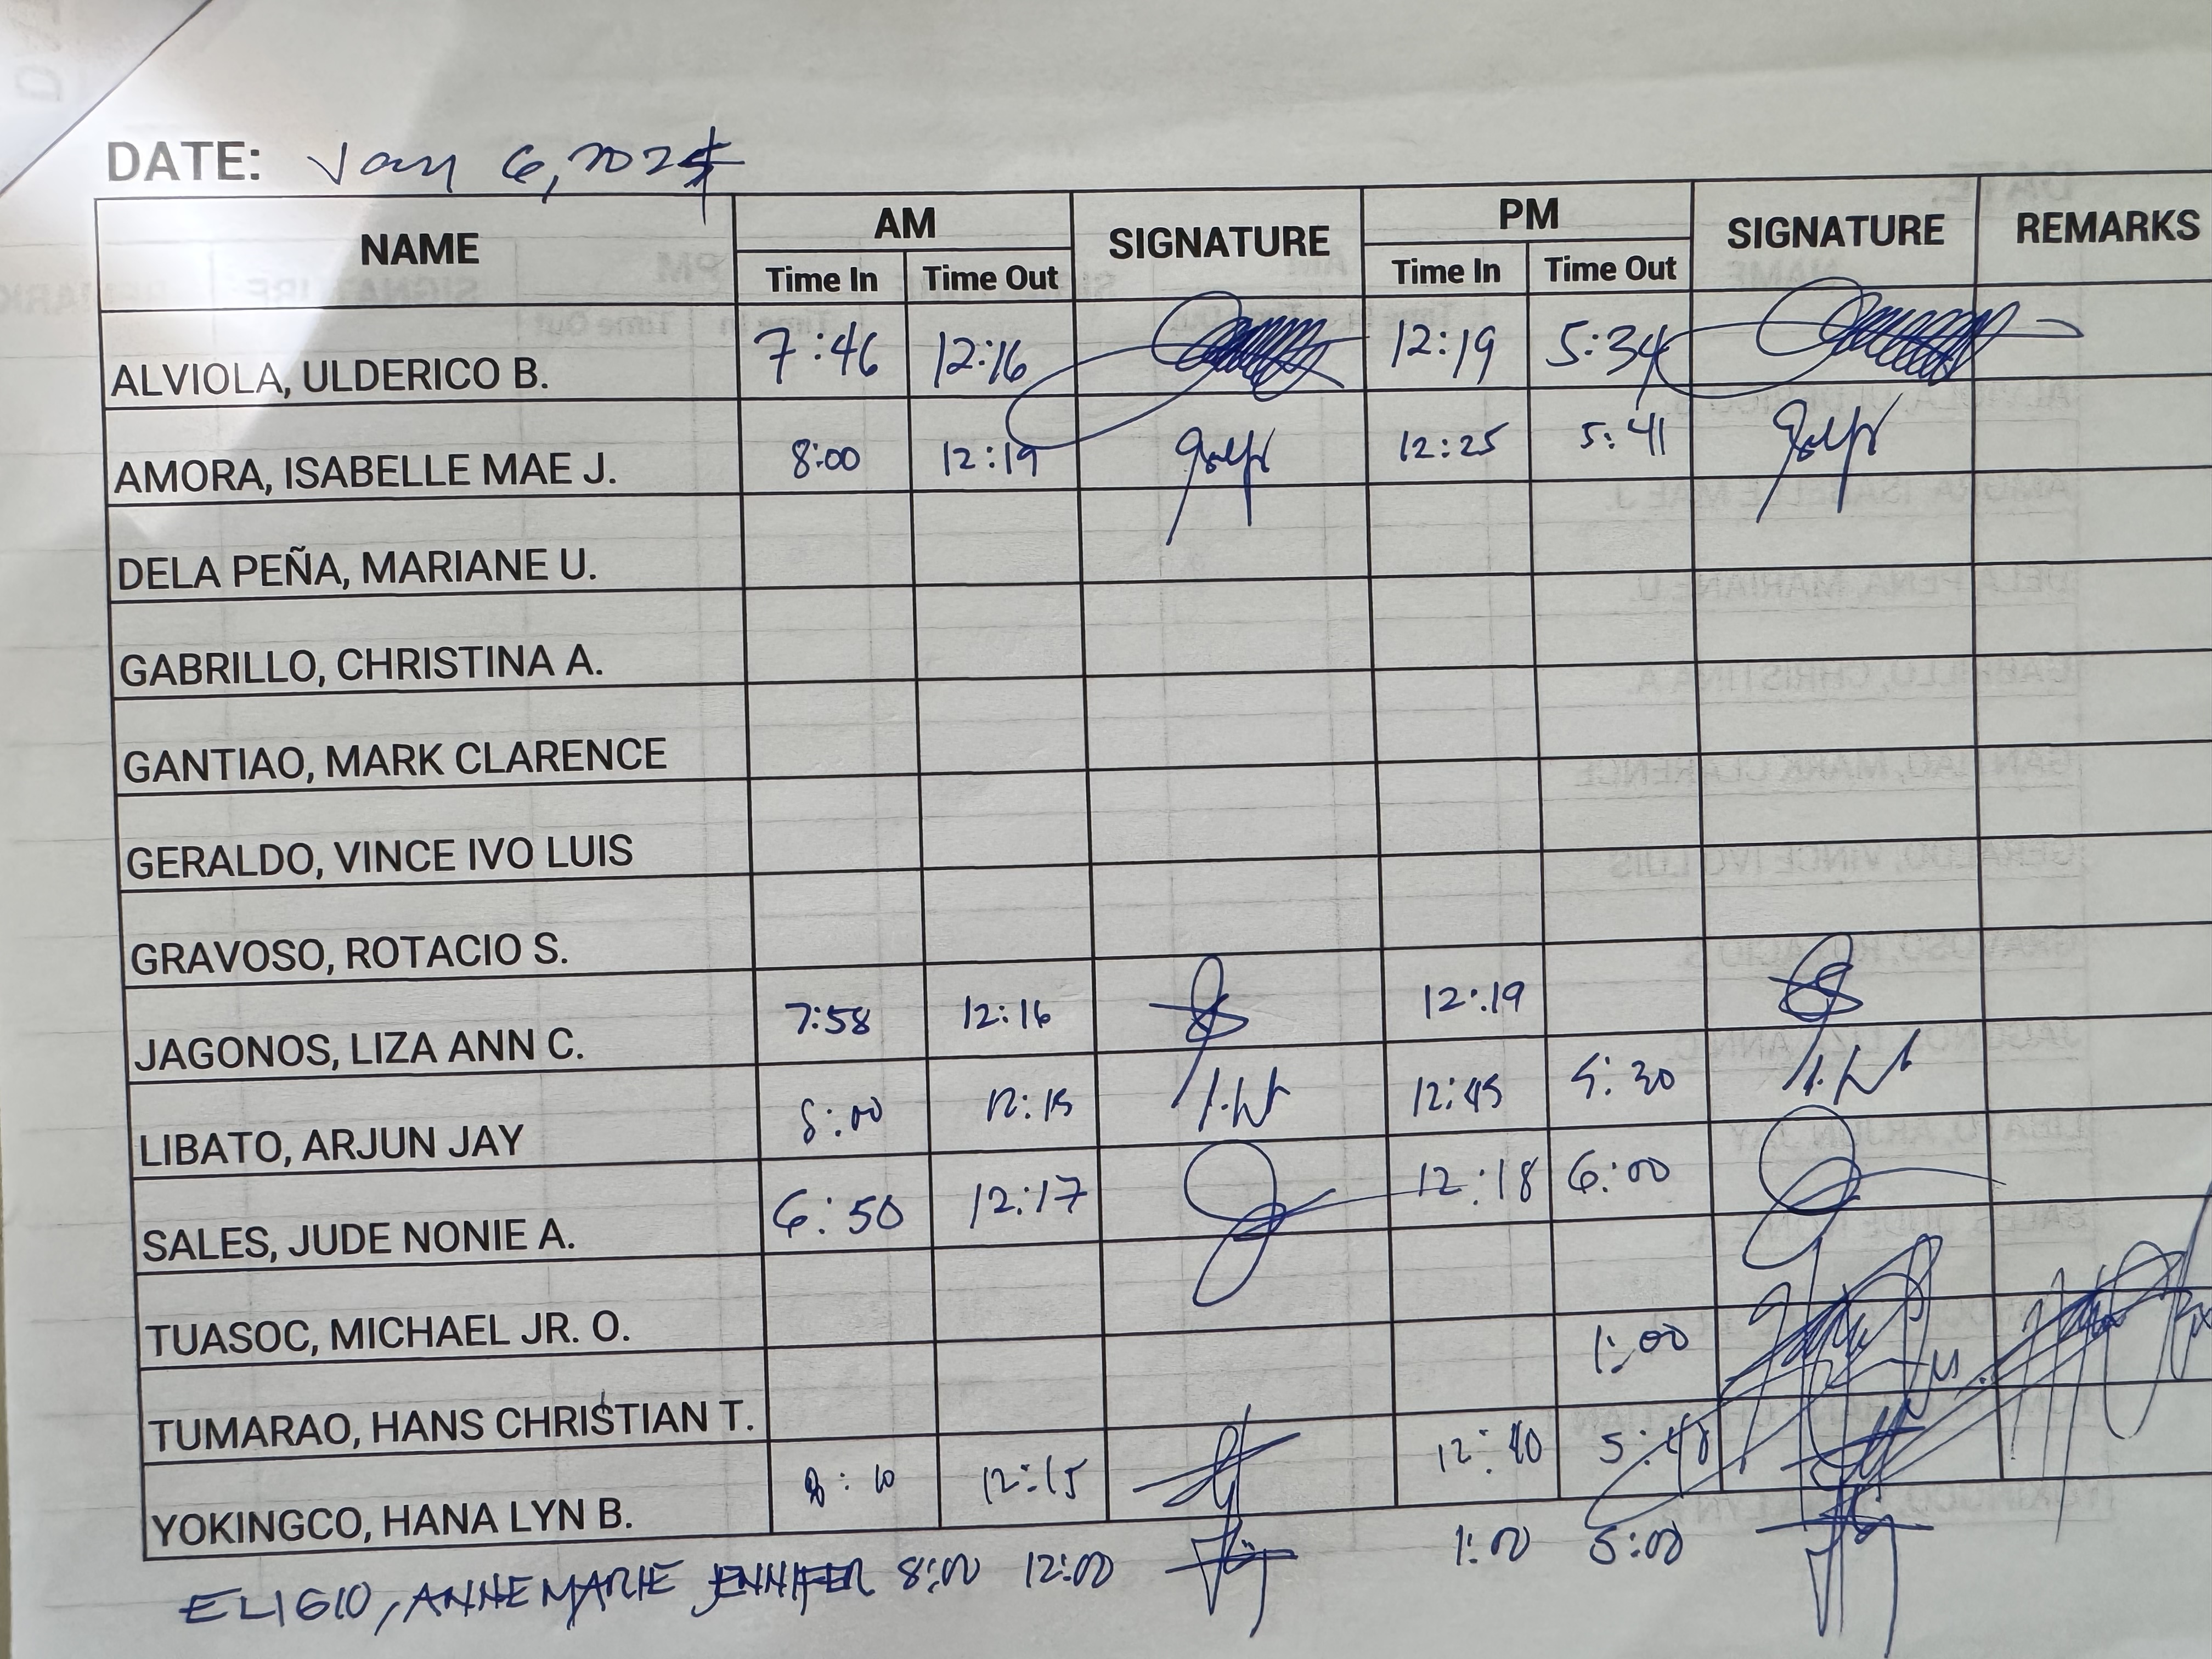 DATE: Jan 6, 2025
NAME AM SIGNATURE PM SIGNATURE REMARKS
Time In Time Out Time In Time Out
ALVIOLA, ULDERICO B. 7:46 12:16 12:19 5:34
AMORA, ISABELLE MAE J. 8:00 12:19 12:25 5:41
DELA PEÑA, MARIANE U.
GABRILLO, CHRISTINA A.
GANTIAO, MARK CLARENCE
GERALDO, VINCE IVO LUIS
GRAVOSO, ROTACIO S.
JAGONOS, LIZA ANN C. 7:58 12:16 12:19
LIBATO, ARJUN JAY 8:00 12:15 12:45 5:30
SALES, JUDE NONIE A. 6:50 12:17 12:18 6:00
TUASOC, MICHAEL JR. O.
TUMARAO, HANS CHRISTIAN T. 1:00
YOKINGCO, HANA LYN B. 8:10 12:15 12:40 5:40
ELIGIO, ANNEMARIE JENNIFER 8:00 12:00 1:00 5:00